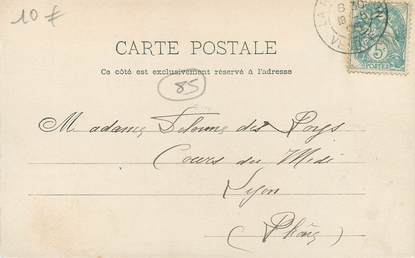 10 F
CARTE POSTALE
Ce côté est exclusivement réservé à l'adresse
85
Madame Delorme des Pays
Cours du Midi
Lyon
(Rhône)
5c
POSTES